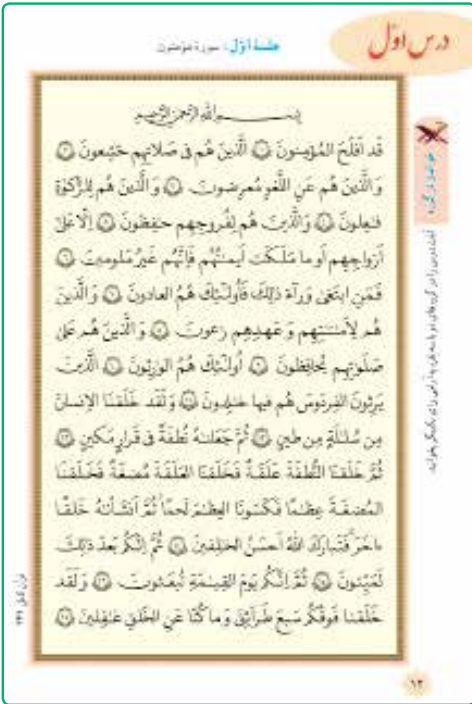 درس اوّل
جلسهٔ اوّل: سورهٔ مؤمنون
بِسْمِ اللهِ الرَّحْمٰنِ الرَّحيمِ
قَد اَفلَحَ المُؤمِنونَ ۱ اَلَّذينَ هُم فى صَلاتِهِم خٰشِعونَ ۲
وَ الَّذينَ هُم عَنِ اللَّغوِ مُعرِضونَ ۳ وَ الَّذينَ هُم لِلزَّكوٰةِ
فٰعِلونَ ۴ وَ الَّذينَ هُم لِفُروجِهِم حٰفِظونَ ۵ اِلّا عَلىٰ
اَزواجِهِم اَو ما مَلَكَت اَيمٰنُهُم فَاِنَّهُم غَيرُ مَلومينَ ۶
فَمَنِ ابتَغىٰ وَرآءَ ذٰلِكَ فَاُولٰٓئِكَ هُمُ العادونَ ۷ وَ الَّذينَ
هُم لِاَمٰنٰتِهِم وَ عَهدِهِم رٰعونَ ۸ وَ الَّذينَ هُم عَلىٰ
صَلَوٰتِهِم يُحافِظونَ ۹ اُولٰٓئِكَ هُمُ الوٰرِثونَ ۱۰ اَلَّذينَ
يَرِثونَ الفِردَوسَ هُم فيها خٰلِدونَ ۱۱ وَ لَقَد خَلَقنَا الاِنسانَ
مِن سُلٰلَةٍ مِن طينٍ ۱۲ ثُمَّ جَعَلنٰهُ نُطفَةً فى قَرارٍ مَكينٍ ۱۳
ثُمَّ خَلَقنَا النُّطفَةَ عَلَقَةً فَخَلَقنَا العَلَقَةَ مُضغَةً فَخَلَقنَا
المُضغَةَ عِظٰمًا فَكَسَونَا العِظٰمَ لَحمًا ثُمَّ اَنشَأنٰهُ خَلقًا
ءاخَرَ فَتَبارَكَ اللهُ اَحسَنُ الخٰلِقينَ ۱۴ ثُمَّ اِنَّكُم بَعدَ ذٰلِكَ
لَمَيِّتونَ ۱۵ ثُمَّ اِنَّكُم يَومَ القِيٰمَةِ تُبعَثونَ ۱۶ وَ لَقَد
خَلَقنا فَوقَكُم سَبعَ طَرآئِقَ وَ ما كُنّا عَنِ الخَلقِ غٰفِلينَ ۱۷
آیات درس را در گروه‌های دو یا سه نفره به آرامی برای یکدیگر بخوانید.
۱۲